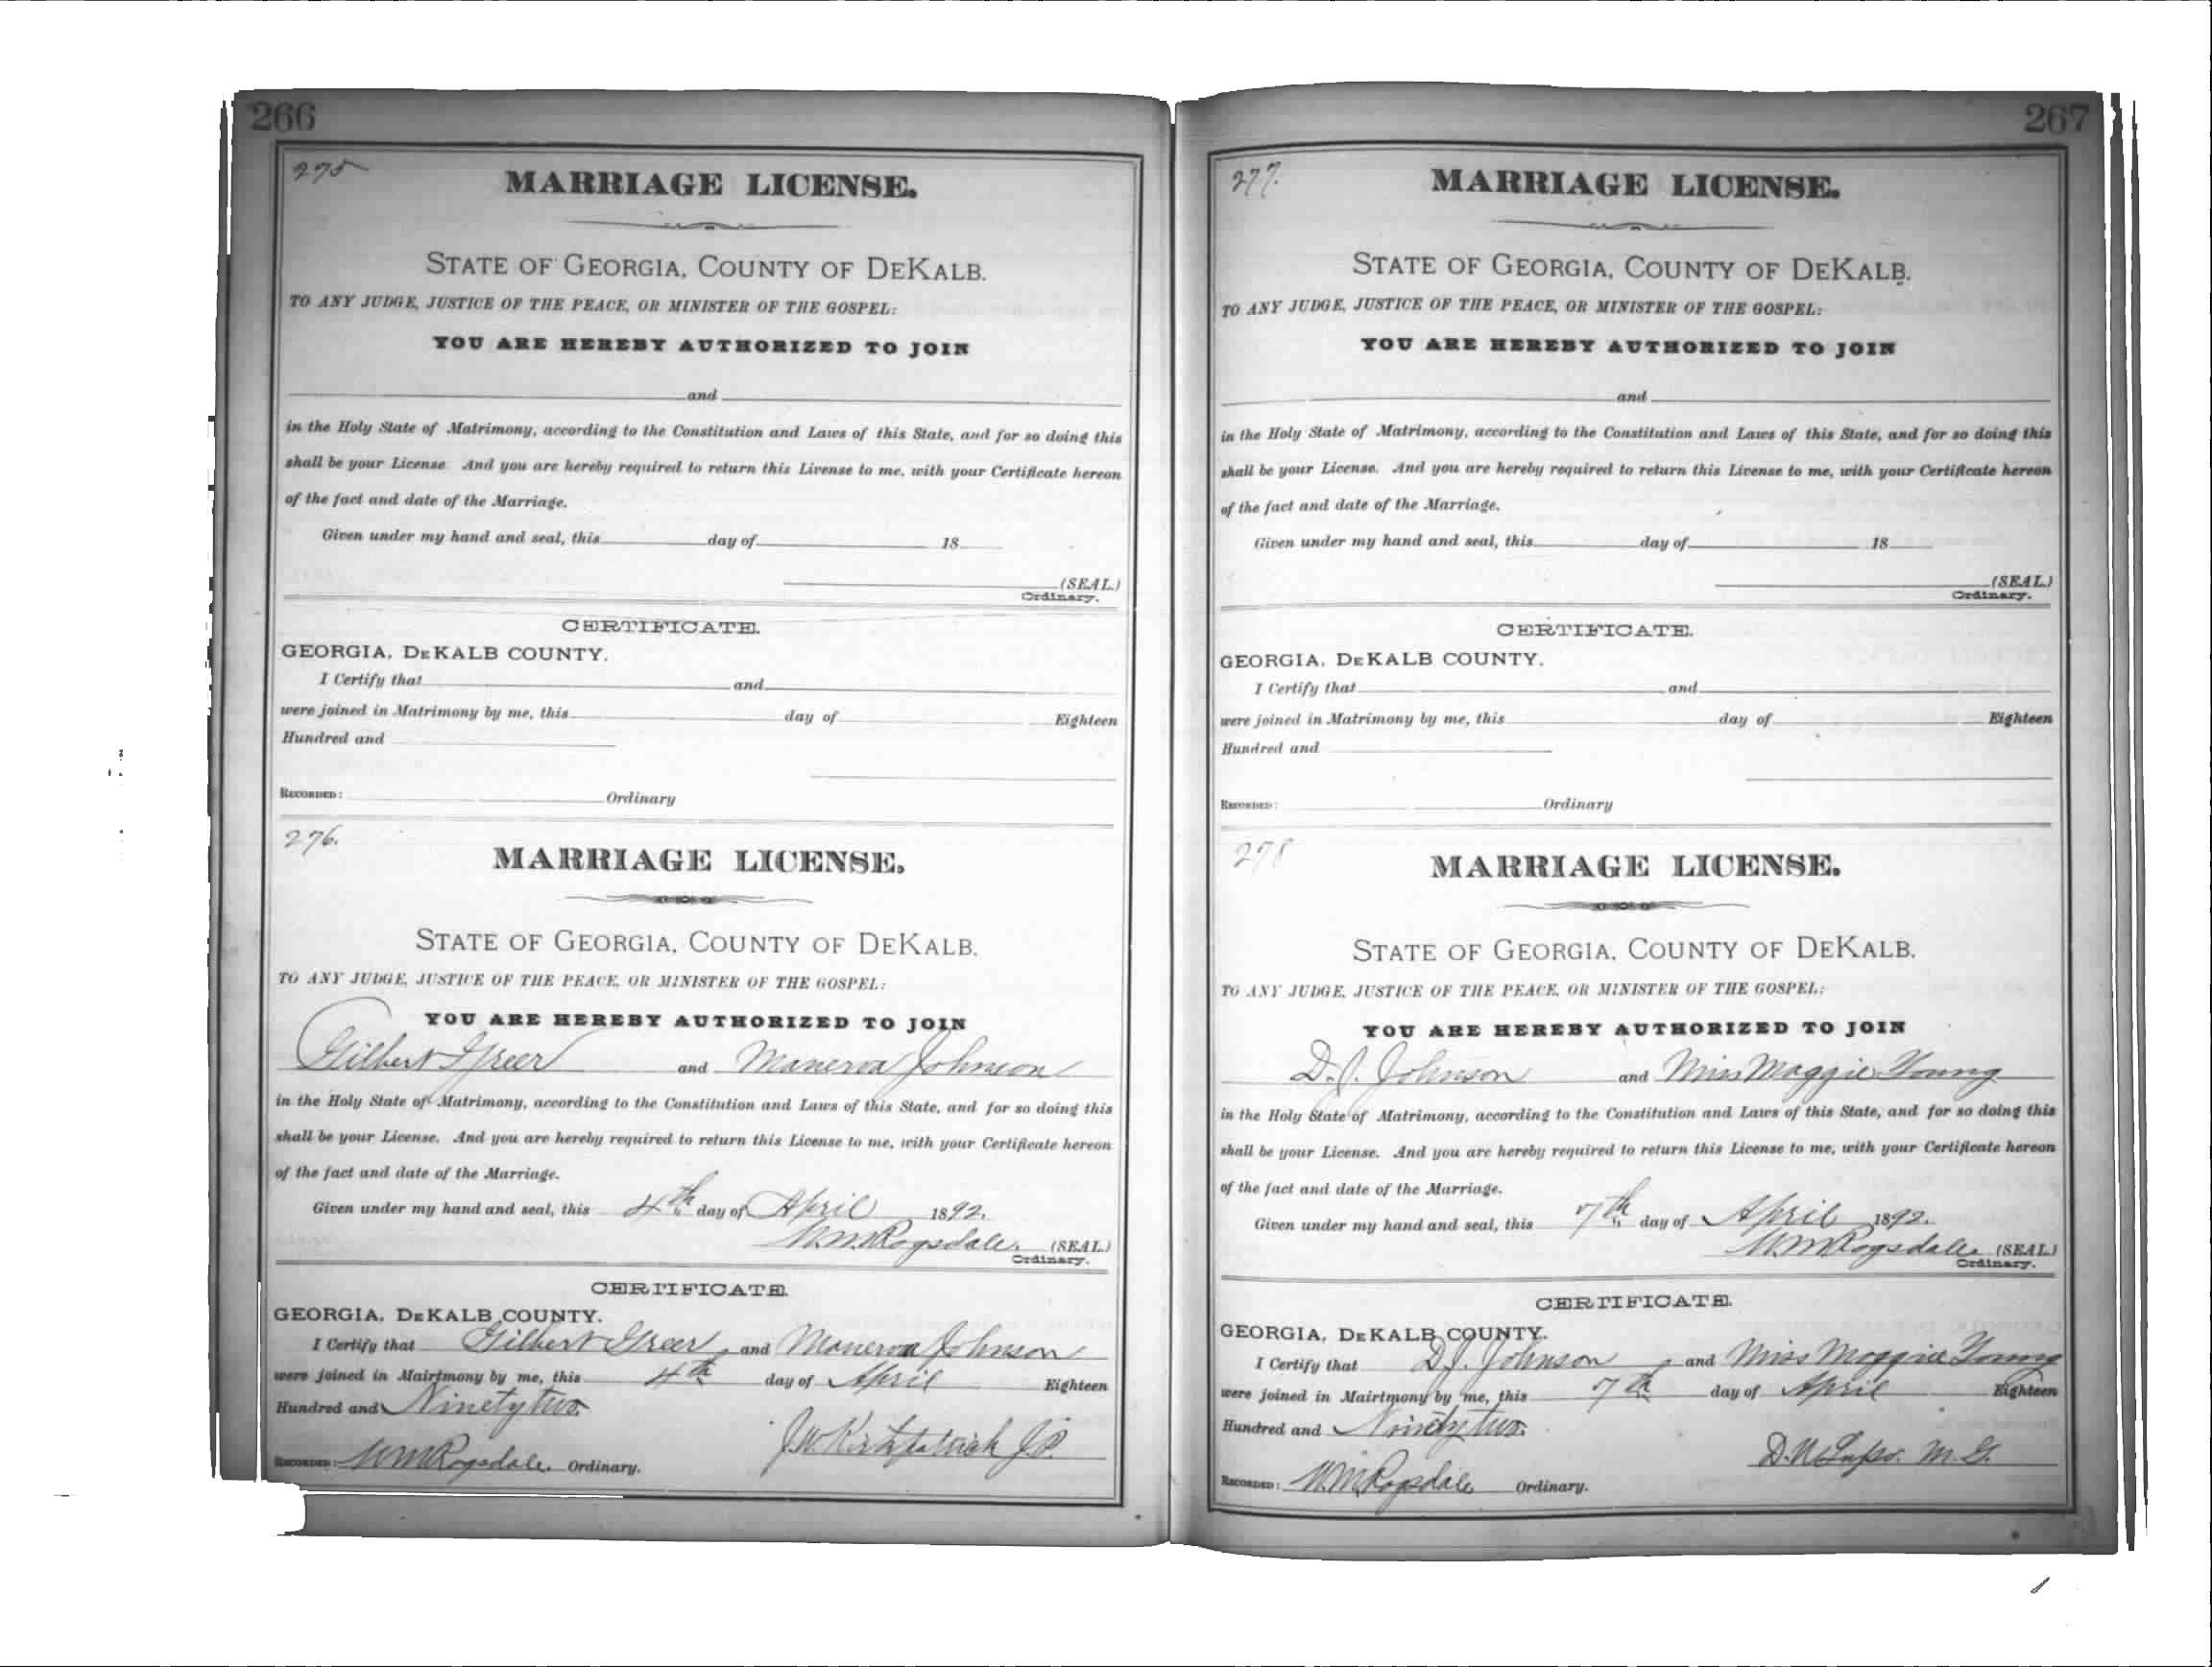 266
275
MARRIAGE LICENSE.
STATE OF GEORGIA, COUNTY OF DEKALB.
TO ANY JUDGE, JUSTICE OF THE PEACE, OR MINISTER OF THE GOSPEL:
YOU ARE HEREBY AUTHORIZED TO JOIN
and
in the Holy State of Matrimony, according to the Constitution and Laws of this State, and for so doing this
shall be your License. And you are hereby required to return this License to me, with your Certificate hereon
of the fact and date of the Marriage.
Given under my hand and seal, this day of 18
(SEAL.)
Ordinary.
CERTIFICATE.
GEORGIA, DEKALB COUNTY.
I Certify that and
were joined in Matrimony by me, this day of Eighteen
Hundred and
RECORDED: Ordinary
276.
MARRIAGE LICENSE.
STATE OF GEORGIA, COUNTY OF DEKALB.
TO ANY JUDGE, JUSTICE OF THE PEACE, OR MINISTER OF THE GOSPEL:
YOU ARE HEREBY AUTHORIZED TO JOIN
Gilbert Greer and Manerva Johnson
in the Holy State of Matrimony, according to the Constitution and Laws of this State, and for so doing this
shall be your License. And you are hereby required to return this License to me, with your Certificate hereon
of the fact and date of the Marriage.
Given under my hand and seal, this 4th day of April 1892.
W.M. Ragsdale. (SEAL.)
Ordinary.
CERTIFICATE.
GEORGIA, DEKALB COUNTY.
I Certify that Gilbert Greer, and Manerva Johnson
were joined in Mairtmony by me, this 4th day of April Eighteen
Hundred and Ninety two.
J.W. Kirkpatrick J.P.
RECORDED: W M Ragsdale. Ordinary.
267
277.
MARRIAGE LICENSE.
STATE OF GEORGIA, COUNTY OF DEKALB.
TO ANY JUDGE, JUSTICE OF THE PEACE, OR MINISTER OF THE GOSPEL:
YOU ARE HEREBY AUTHORIZED TO JOIN
and
in the Holy State of Matrimony, according to the Constitution and Laws of this State, and for so doing this
shall be your License. And you are hereby required to return this License to me, with your Certificate hereon
of the fact and date of the Marriage.
Given under my hand and seal, this day of 18
(SEAL.)
Ordinary.
CERTIFICATE.
GEORGIA, DEKALB COUNTY.
I Certify that and
were joined in Matrimony by me, this day of Eighteen
Hundred and
RECORDED: Ordinary
278
MARRIAGE LICENSE.
STATE OF GEORGIA, COUNTY OF DEKALB.
TO ANY JUDGE, JUSTICE OF THE PEACE, OR MINISTER OF THE GOSPEL:
YOU ARE HEREBY AUTHORIZED TO JOIN
D.J. Johnson and Miss Maggie Young
in the Holy State of Matrimony, according to the Constitution and Laws of this State, and for so doing this
shall be your License. And you are hereby required to return this License to me, with your Certificate hereon
of the fact and date of the Marriage.
Given under my hand and seal, this 7th day of April 1892.
W.M Ragsdale (SEAL.)
Ordinary.
CERTIFICATE.
GEORGIA, DEKALB COUNTY.
I Certify that D.J. Johnson, and Miss Maggie Young
were joined in Mairtmony by me, this 7th day of April Eighteen
Hundred and Ninety two.
M. G.
RECORDED: W.M. Ragsdale Ordinary.